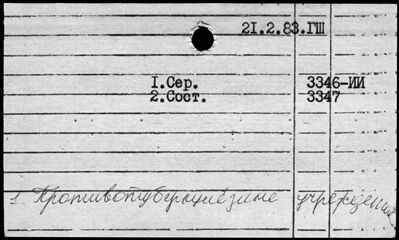 21.2.83.ГШ
1.Сер. 3346-ИИ
2.Сост. 3347
1. Противотуберкулёзные учреждения